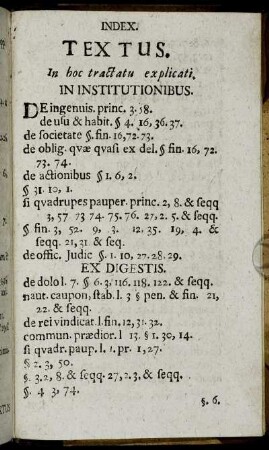 INDEX.
TEXTUS.
In hoc tractatu explicati.
IN INSTITUTIONIBUS.
DE ingenuis. princ. 3. 58.
de usu & habit. § 4. 16, 36. 37.
de societate §. fin. 16, 72. 73.
de oblig. qvæ qvasi ex del. § fin. 16, 72.
73. 74.
de actionibus § 1. 6, 2.
§ 31. 10, 1.
si qvadrupes pauper. princ. 2, 8. & seqq
3, 57 73 74. 75. 76. 27, 2. 5. & seqq.
§ fin. 3, 52. 9, 3. 12. 35. 19, 4. &
seqq. 21, 31 & seq.
de offic. Judic §. 1. 10, 27. 28. 29.
EX DIGESTIS.
de dolo l. 7. § 6. 3, 116. 118. 122. & seqq.
naut. caupon, stab. l. 3 § pen. & fin. 21,
22. & seqq.
de rei vindicat. l. fin. 12, 31. 32.
commun. prædior. l 13. § 1. 30, 14.
si qvadr. paup. l. 1. pr. 1, 27.
§ 2. 3, 50.
§. 3. 2, 8. & seqq. 27, 2. 3, & seqq.
§. 4 3, 74.
§. 6.